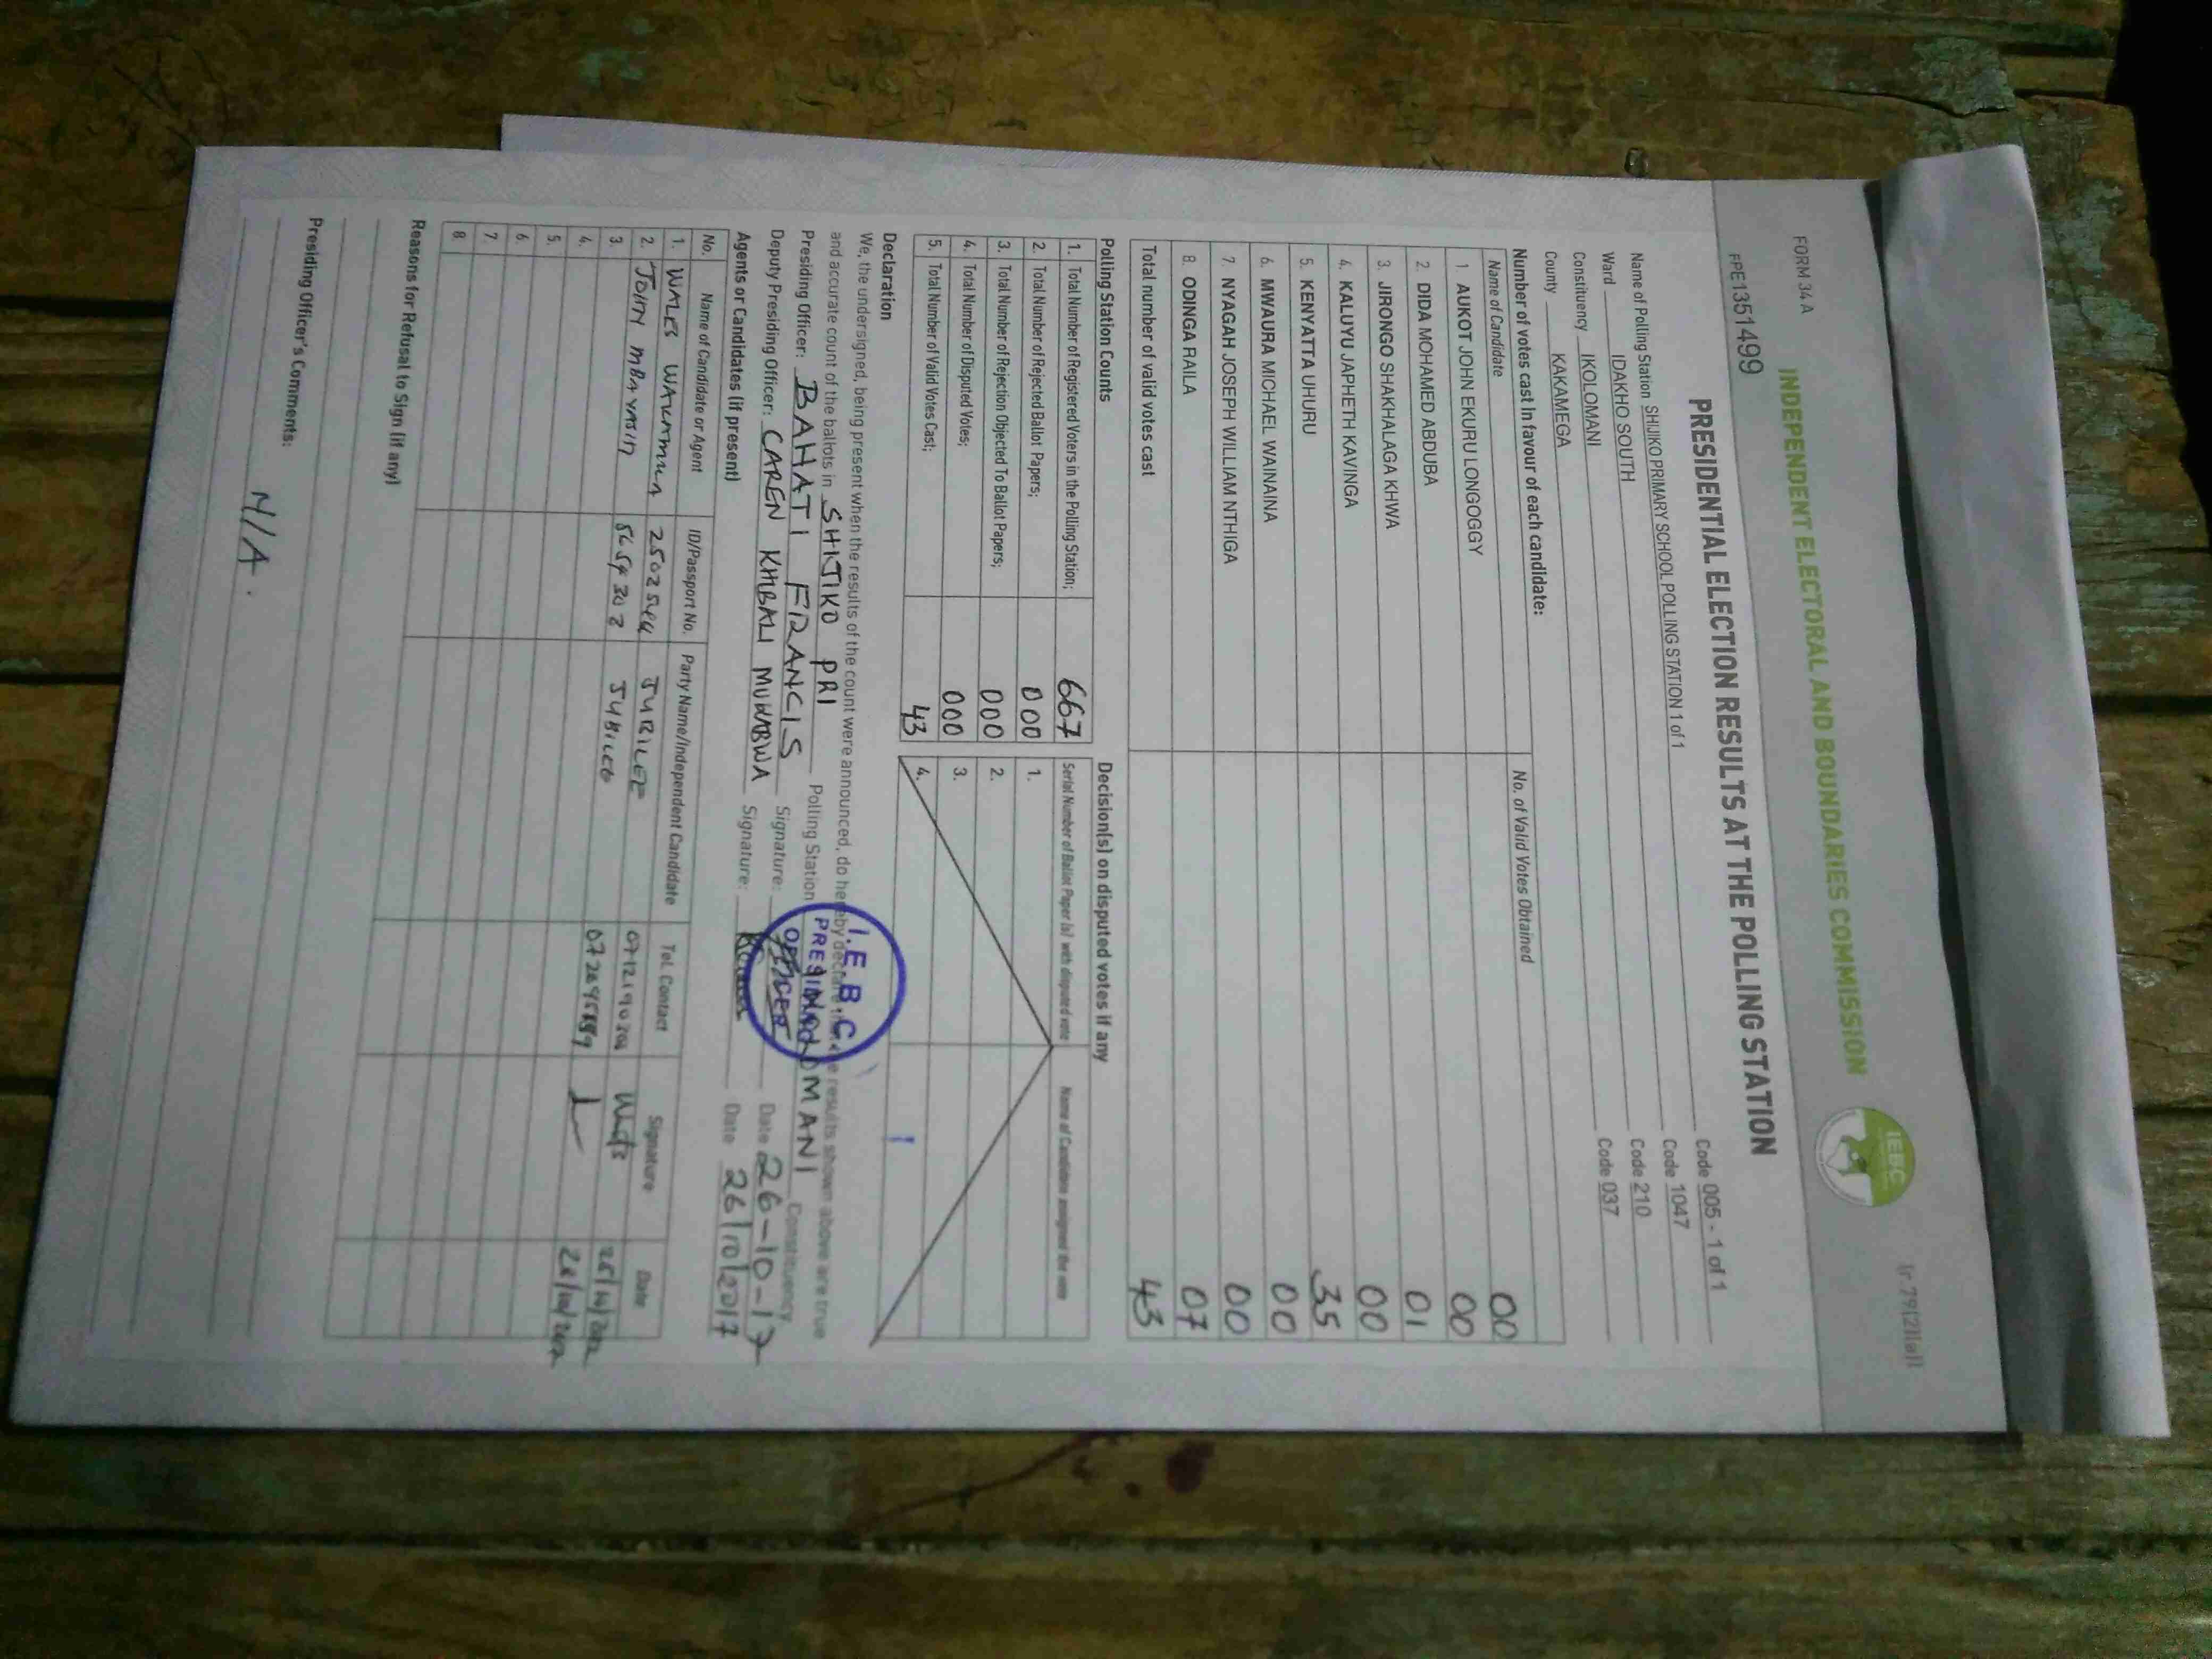 FORM 34A
INDEPENDENT ELECTORAL AND BOUNDARIES COMMISSION
IEBC
FPE1351499
PRESIDENTIAL ELECTION RESULTS AT THE POLLING STATION
Name of Polling Station SHIJIKO PRIMARY SCHOOL POLLING STATION 1 of 1 Code 005 - 1 of 1
Ward IDAKHO SOUTH Code 1047
Constituency IKOLOMANI Code 210
County KAKAMEGA Code 037
Number of votes cast in favour of each candidate:
Name of Candidate No. of Valid Votes Obtained
1. AUKOT JOHN EKURU LONGOGGY 00
2. DIDA MOHAMED ABDUBA 00
3. JIRONGO SHAKHALAGA KHWA 01
4. KALUYU JAPHETH KAVINGA 00
5. KENYATTA UHURU 35
6. MWAURA MICHAEL WAINAINA 00
7. NYAGAH JOSEPH WILLIAM NTHIGA 00
8. ODINGA RAILA 07
Total number of valid votes cast 43
Polling Station Counts Decision(s) on disputed votes if any
1. Total Number of Registered Voters in the Polling Station; 667
2. Total Number of Rejected Ballot Papers; 000
3. Total Number of Rejection Objected To Ballot Papers; 000
4. Total Number of Disputed Votes; 000
5. Total Number of Valid Votes Cast; 43
Serial Number of Ballot Paper (s) with dispute vote Name of Candidate assigned the vote
1.
2.
3.
4.
Declaration
We, the undersigned, being present when the results of the count were announced, do hereby declare that the results shown above are true
and accurate count of the ballots in SHIJIKO PRI Polling Station IKOLOMANI Constituency
I.E.B.C
PRESIDING
OFFICER
Presiding Officer: BAHATI FRANCIS Signature: Date 26-10-17
Deputy Presiding Officer: CAREN KHBALI MUKABWA Signature: Date 26/10/2017
Agents or Candidates (if present)
No. Name of Candidate or Agent ID/Passport No. Party Name/Independent Candidate Tel. Contact Signature Date
1. WALES JUBILEE
2.
3.
4.
5.
6.
7.
8.
Reasons for Refusal to Sign (if any)
Presiding Officer's Comments:
N/A.